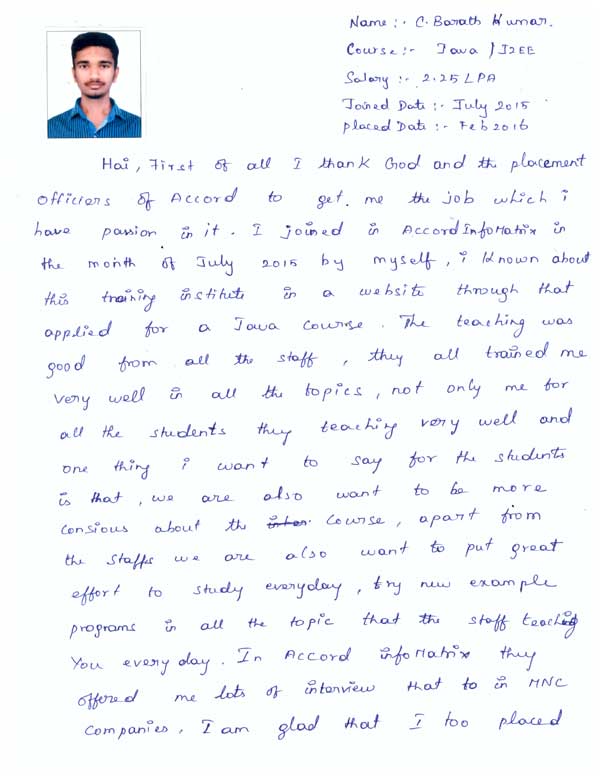 Name:- C. Barath Kumar.
Course:- Java / J2EE
Salary:- 2.25 LPA
Joined Date:- July 2015
Placed Date:- Feb 2016
Hai, First of all I thank God and the placement
officiers of Accord to get. me the job which i
have passion in it. I joined in AccordInfoMatrix in
the month of July 2015 by myself, i known about
this training institute in a website through that
applied for a Java course. The teaching was
good from all the staff, they all trained me
very well in all the topics, not only me for
all the students they teaching very well and
one thing i want to say for the students
is that, we are also want to be more
consious about the course, apart from
the staffs we are also want to put great
effort to study everyday, try new example
programs in all the topic that the staff teaching
You every day. In Accord infoMatrix they
offered me lots of interview that to in MNC
Companies, I am glad that I too placed